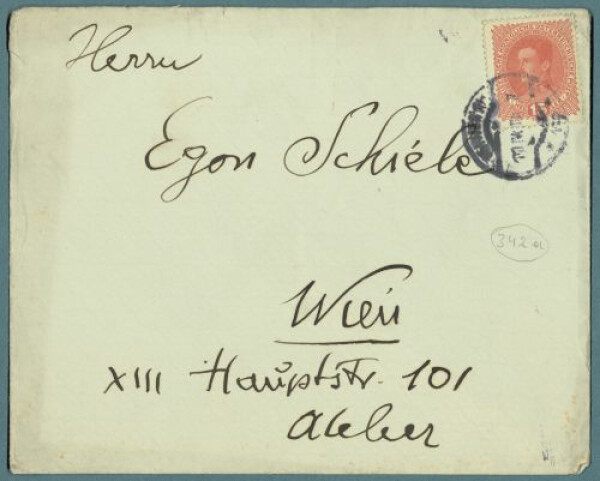 Herrn
Egon Schiele
342 u
Wien
XIII Hauptstr. 101
Atelier